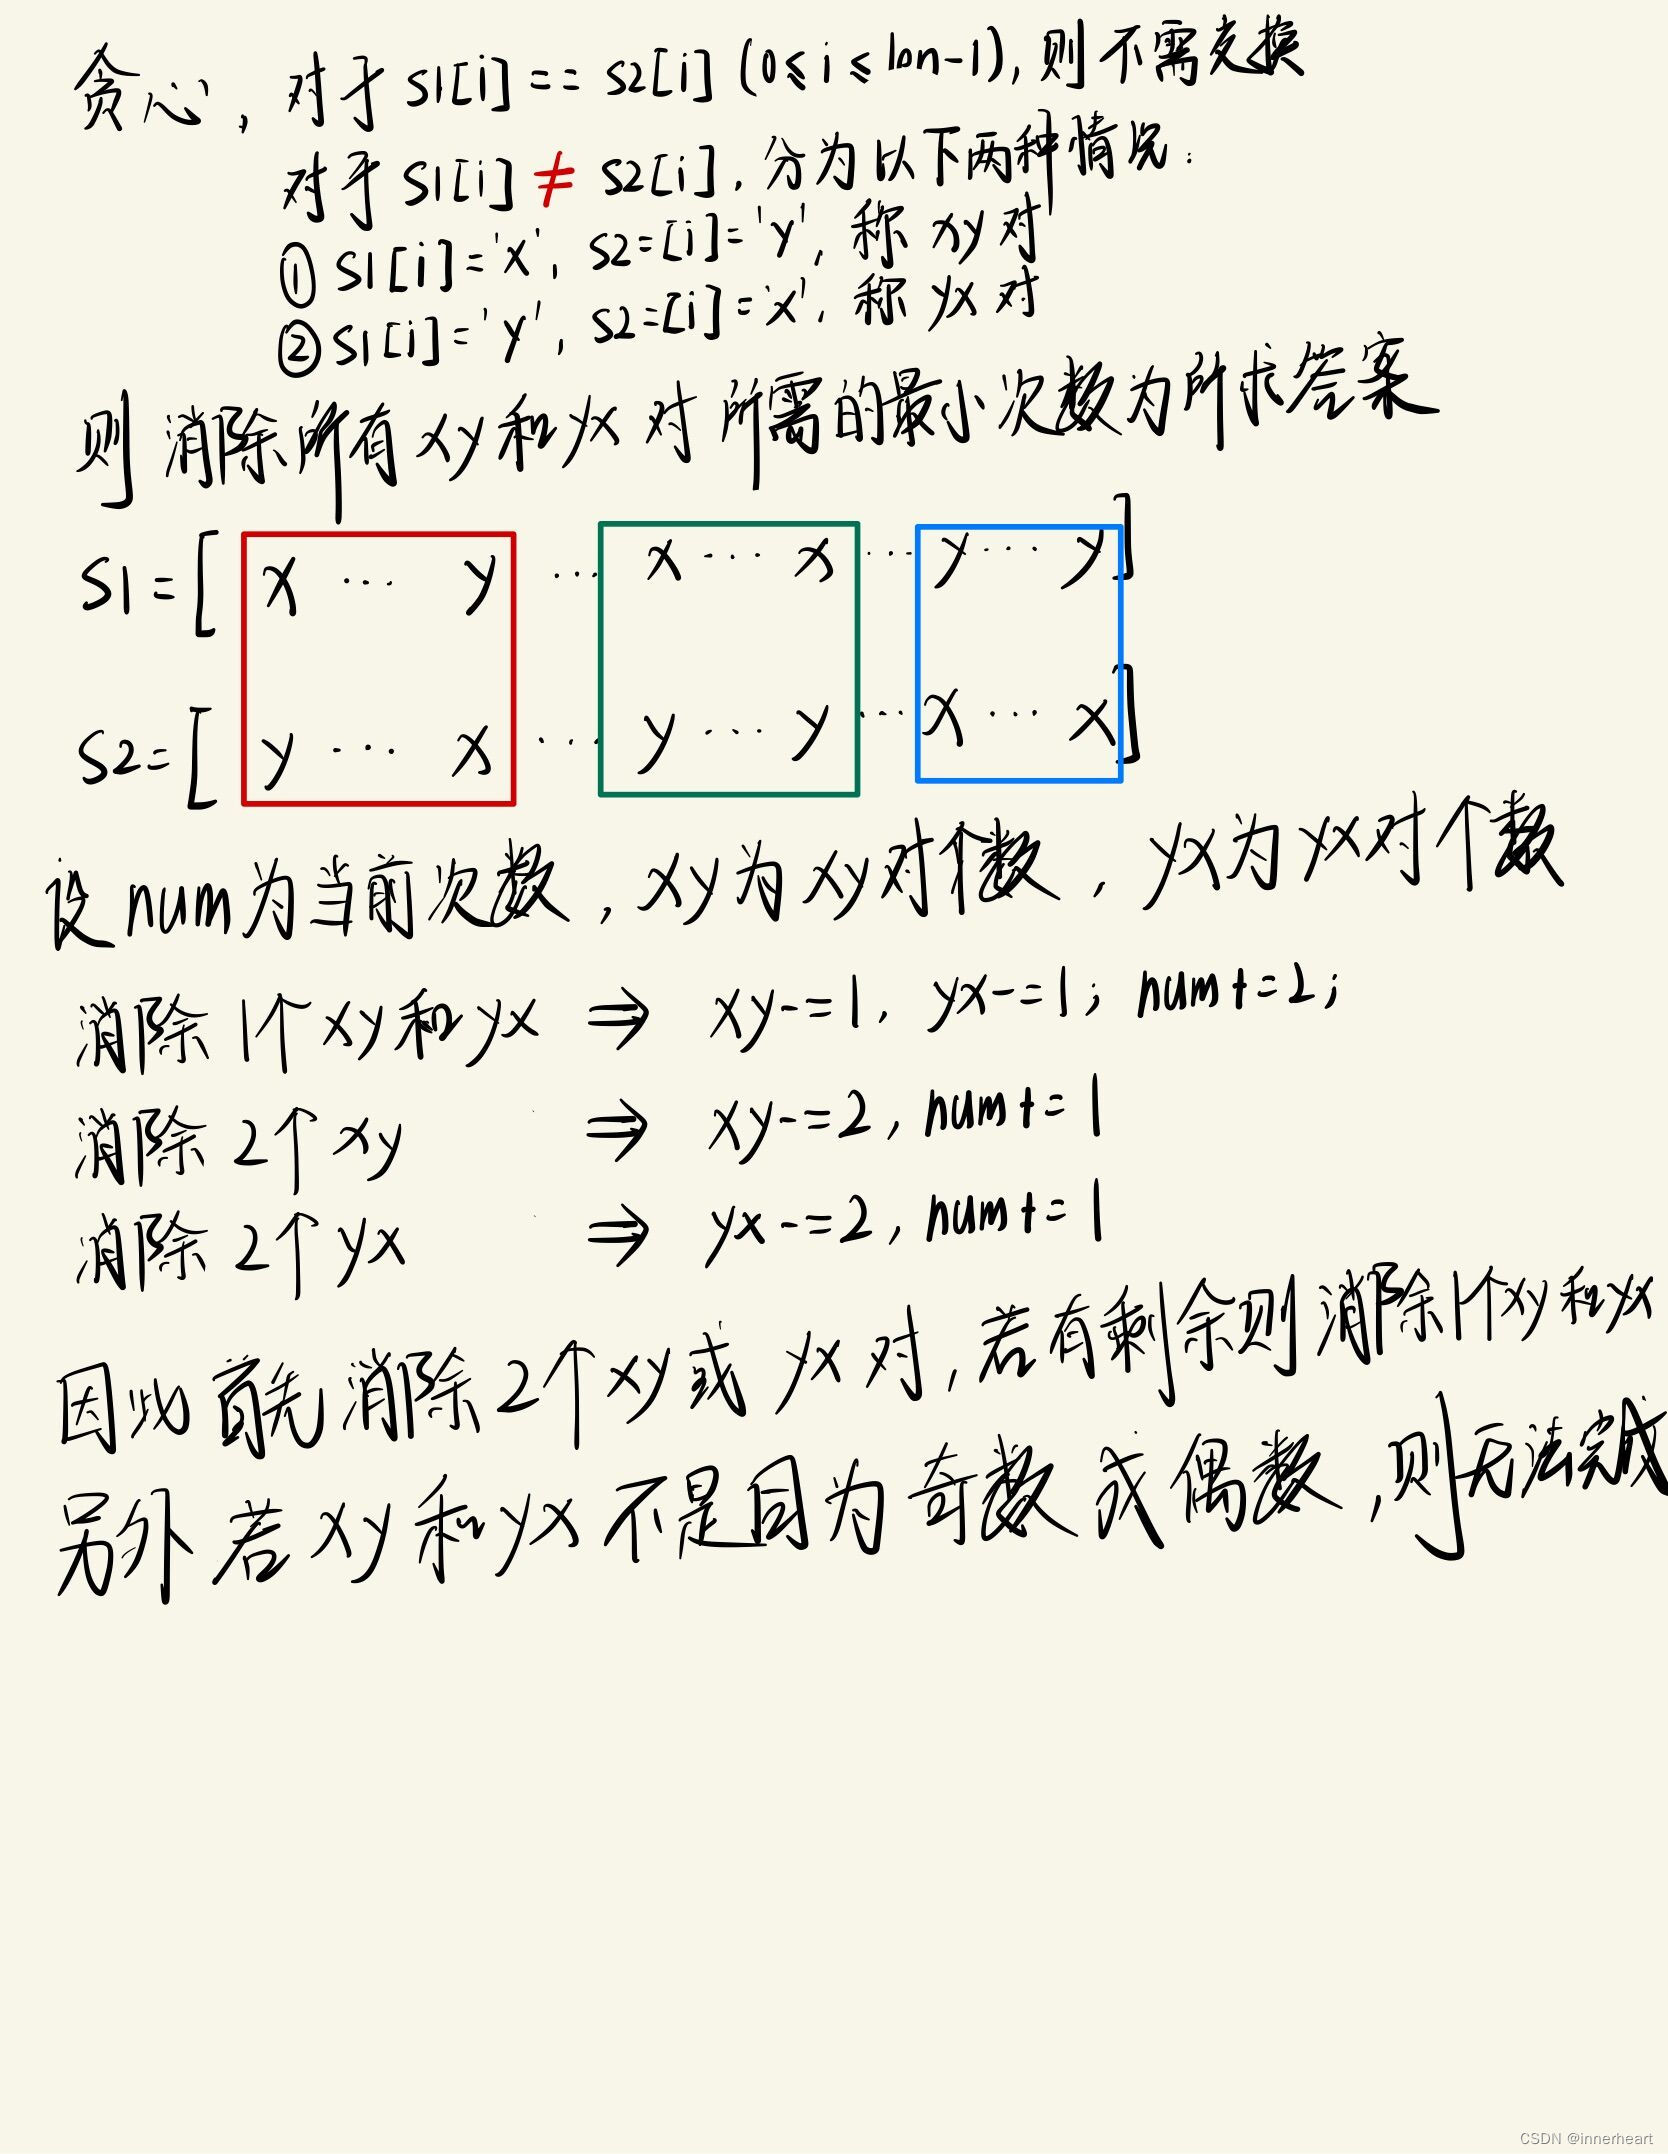 贪心，对于 S1[i] == S2[i] (0≤i≤len-1)，则不需交换
对于 S1[i] ≠ S2[i]，分为以下两种情况：
① S1[i]='x'，S2=[i]='y'，称 xy 对
② S1[i]='y'，S2=[i]='x'，称 yx 对
则 消除所有 xy 和 yx 对 所需的最小次数为所求答案
S1=[ x ... y ... x ... x ... y ... y ]
S2=[ y ... x ... y ... y ... x ... x ]
设 num 为当前次数，xy 为 xy 对个数，yx 为 yx 对个数
消除 1个 xy 和 yx ⇒ xy-=1，yx-=1；num+=2；
消除 2个 xy ⇒ xy-=2，num+=1
消除 2个 yx ⇒ yx-=2，num+=1
因此 首先 消除 2个 xy 或 yx 对，若有剩余则 消除 1个 xy 和 yx
另外 若 xy 和 yx 不是同为 奇数 或 偶数，则无法完成
CSDN @innerheart